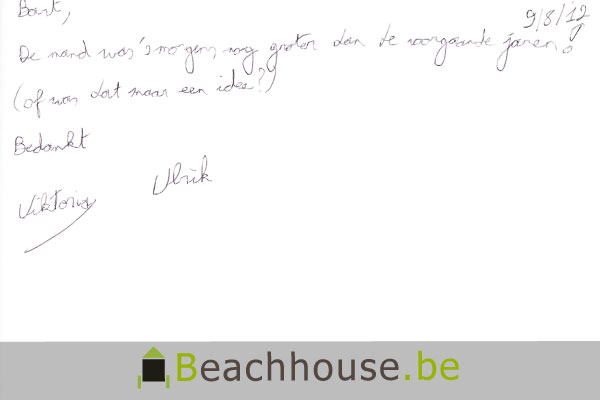 Bart,
9/8/12
De mand was 's morgens nog groter dan de voorgaande jaren!
(of was dat maar een idee?)
Bedankt
Viktoria Ulrik
Beachhouse.be